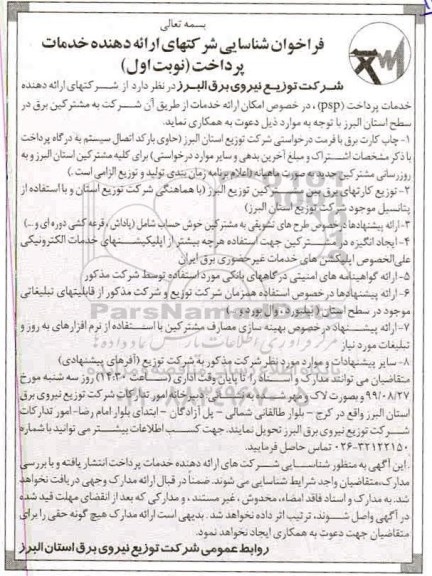 بسمه تعالی
فراخوان شناسایی شرکتهای ارائه دهنده خدمات
پرداخت (نوبت اول)
شرکت توزیع نیروی برق البرز در نظر دارد از شرکتهای ارائه دهنده
خدمات پرداخت (psp) ، در خصوص امکان ارائه خدمات از طریق آن شرکت به مشترکین برق در
سطح استان البرز با توجه به موارد ذیل دعوت به همکاری نماید.
۱- چاپ کارت برق با فرمت درخواستی شرکت توزیع استان البرز (حاوی بارکد اتصال سیستم به درگاه پرداخت
با ذکر مشخصات اشتراک و مبلغ آخرین بدهی و سایر موارد درخواستی) برای کلیه مشترکین استان البرز و به
روزرسانی مشترکین جدید به صورت ماهیانه (اعلام برنامه زمان بندی تولید و توزیع الزامی است.)
۲- توزیع کارتهای برق بین مشترکین توزیع البرز (با هماهنگی شرکت توزیع استان و با استفاده از
پتانسیل موجود شرکت توزیع استان البرز)
۳- ارائه پیشنهادها درخصوص طرح های تشویقی به مشترکین خوش حساب شامل (پاداش ، قرعه کشی دوره ای و...)
۴- ایجاد انگیزه در مشترکین جهت استفاده هرچه بیشتر از اپلیکیشنهای خدمات الکترونیکی
علی الخصوص اپلیکشن های خدمات غیرحضوری برق ایران
۵- ارائه گواهینامه های امنیتی درگاههای بانکی مورد استفاده توسط شرکت مذکور
۶- ارائه پیشنهادها درخصوص استفاده همزمان شرکت توزیع و شرکت مذکور از قابلیتهای تبلیغاتی
موجود در سطح استان (بیلبورد، وال بورد و...
۷- ارائه پیشنهاد درخصوص بهینه سازی مصارف مشترکین با استفاده از نرم افزارهای به روز و
تبلیغات مورد نیاز
۸- سایر پیشنهادات و موارد مورد نظر شرکت مذکور به شرکت توزیع (آفرهای پیشنهادی)
متقاضیان می توانند مدارک و اسناد را تا پایان وقت اداری (ساعت ۱۴:۳۰) روز سه شنبه مورخ
۹۹/۰۸/۲۷ و بصورت لاک و مهر شده به نشانی دبیرخانه امور تدارکات شرکت توزیع نیروی برق
استان البرز واقع در کرج - بلوار طالقانی شمالی - پل آزادگان - ابتدای بلوار امام رضا- امور تدارکات
شرکت توزیع نیروی برق البرز تحویل نمایند. جهت کسب اطلاعات بیشتر می توانید با شماره
۰۲۶-۳۲۱۲۲۱۵۰ تماس حاصل فرمایید.
. این آگهی به منظور شناسایی شرکت های ارائه دهنده خدمات پرداخت انتشار یافته و با بررسی
مدارک، متقاضیان واجد شرایط شناسایی می شوند. ضمناً در قبال ارائه مدارک وجهی دریافت نخواهد
شد. به مدارک و اسناد فاقد امضاء، مخدوش ، غیر مستند ، و مدارکی که بعد از انقضای مهلت قید شده
در آگهی واصل شوند، ترتیب اثر داده نخواهد شد. بدیهی است ارائه مدارک هیچ گونه حقی را برای
متقاضیان جهت دعوت به همکاری ایجاد نخواهد نمود.
روابط عمومی شرکت توزیع نیروی برق استان البرز